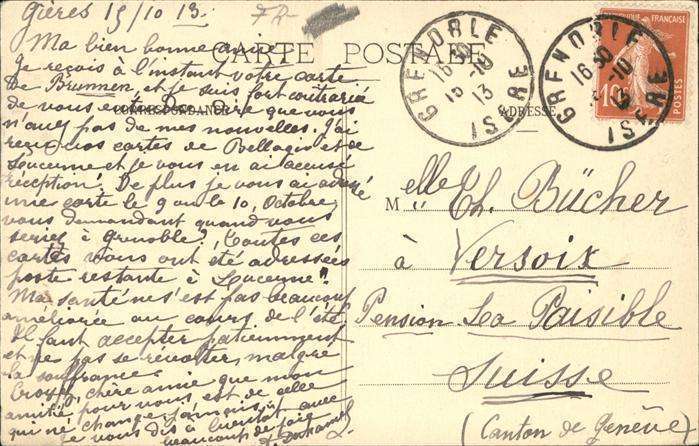 Gières 15/10 13.
CARTE POSTALE
CORRESPONDANCE
ADRESSE
Ma bien bonne amie,
Je reçois à l'instant votre carte
De Brunnen, et je suis fort contrariée
de vous entendre dire que vous
n'avez pas de mes nouvelles. J'ai
reçu vos cartes de Bellagio et de
Lucerne et je vous en ai accusé
réception. De plus je vous ai adressé
une carte le 9 ou le 10, Octobre
vous demandant quand vous
seriez à Grenoble. Toutes ces
cartes vous ont été adressées
poste restante à Lucerne".
Ma santé ne s'est pas beaucoup
améliorée au cours de l'été
Il faut accepter patiemment
et ne pas se révolter, malgré
la souffrance.
Croyez, chère amie que mon
amitié pour vous, est de celle
qui ne change jamais.
Je vous dis à bientôt avec
beaucoup de joie
GRENOBLE
16 30
15 -10
13
ISERE
GRENOBLE
16 30
-10
13
ISERE
RÉPUBLIQUE FRANÇAISE
10
POSTES
Melle Ch. Bücher
à Versoix
Pension Le Paisible
Suisse
(Canton de Genève)